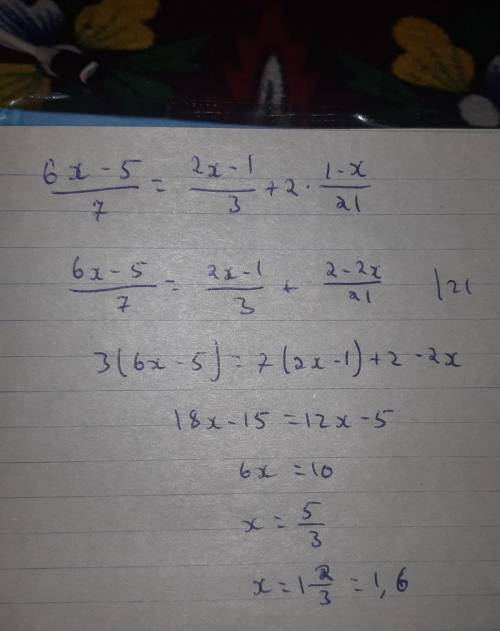 6x-5/7 = 2x-1/3 + 2 · 1-x/21
6x-5/7 = 2x-1/3 + 2-2x/21 |21
3(6x-5) = 7(2x-1)+2-2x
18x-15 = 12x-5
6x = 10
x = 5/3
x = 1 2/3 = 1,6